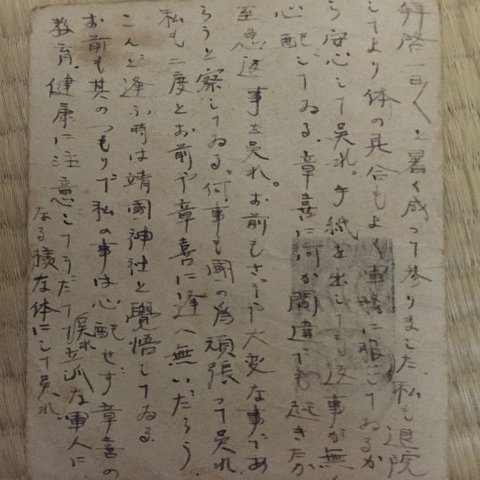 拝啓一日〱と暑く成って参りました、私も退院
してより体の具合もよく軍務に服してゐるか
ら安心して呉れ。手紙を出しても返事が無く
心配してゐる、章喜に何か間違でも起きたか
至急返事を呉れ。お前もさぞや大変な事であ
らうと察してゐる。何事も國の為頑張って呉れ
私も二度とお前や章喜に逢へ無いだらう
こんど逢ふ時は靖國神社と覺悟してゐる
お前も其のつもりで私の事は心配せず章喜の
教育、健康に注意してうだて候立派な軍人に
なる様な体にして呉れ